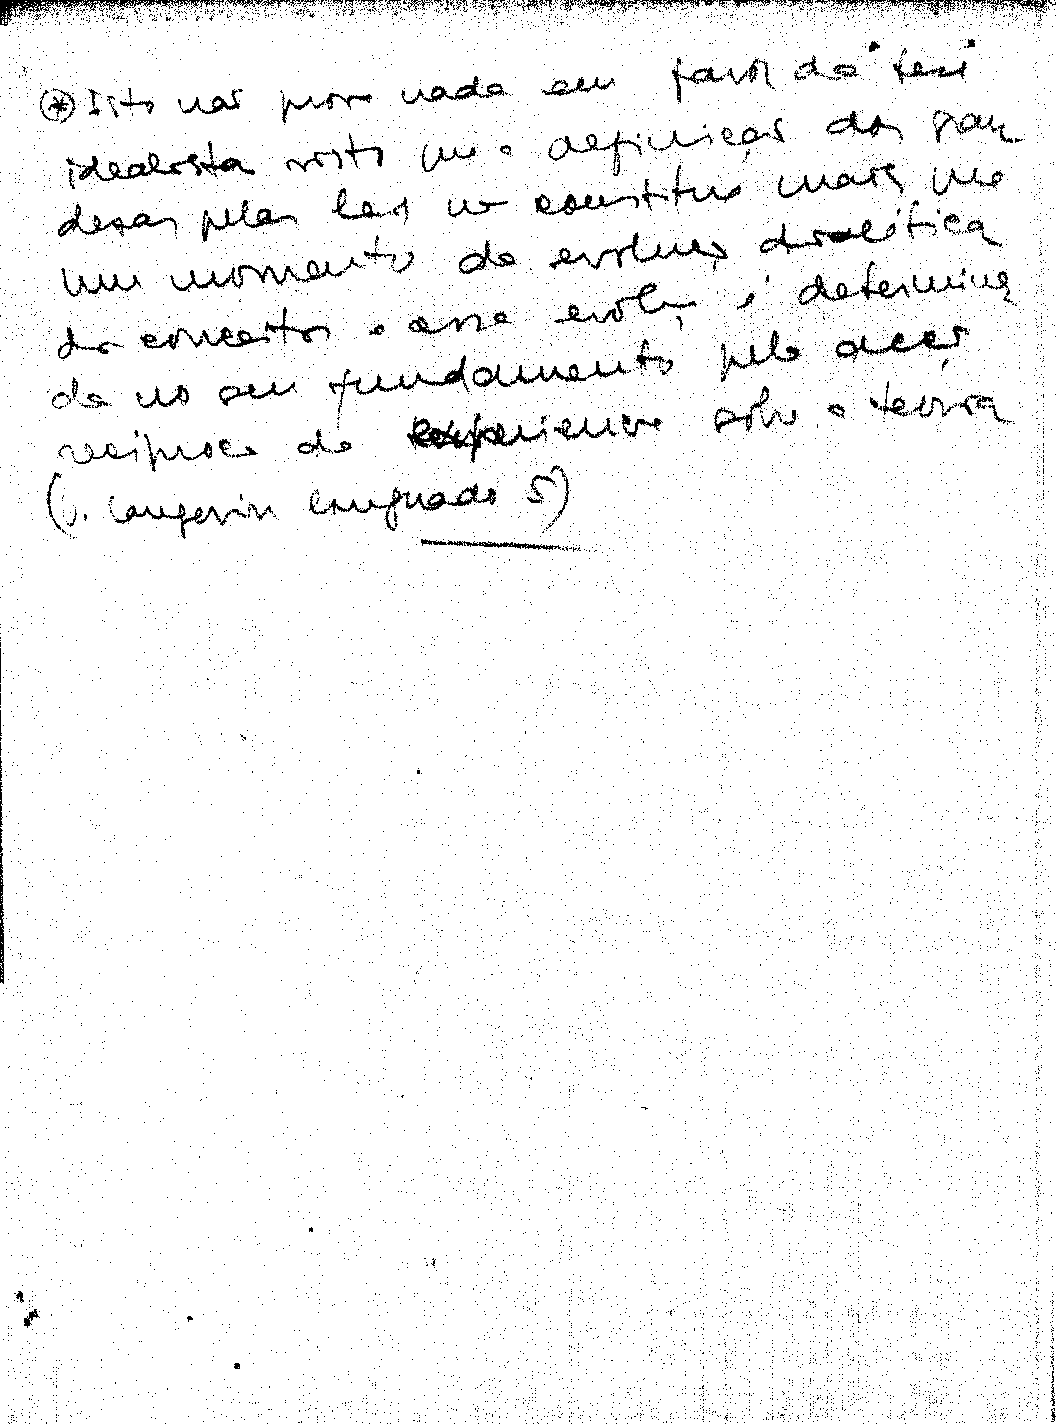 ⊛ Isto não prova nada em favor da tese
idealista visto que a definição das gran
desas pelas leis não constitue mais que
um momento da evolução dialética
dos conceitos e essa evolução é determina
da no seu fundamento pela acção
reciproca da experiencia sobre a teoria
(v. Langevin Linguado 5)